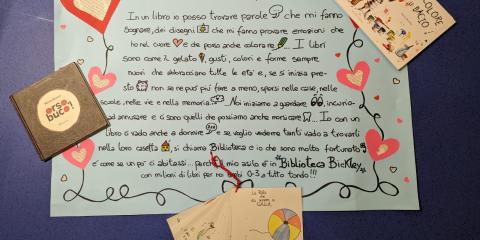 In un libro io posso trovare parole che mi fanno
sognare, dei disegni che mi fanno provare emozioni che
ho nel cuore e che posso anche colorare. I libri
sono come il gelato, gusti, colori e forme sempre
nuovi che abbracciano tutte le età e, se si inizia pre-
sto non se ne può più fare a meno, sparsi nelle case, nelle
scuole, nelle vie e nella memoria. Noi iniziamo a guardare, incurio-
ad annusare e ci sono quelli che possiamo anche morsicare... Io con un
libro ci vado anche a dormire e se voglio vederne tanti vado a trovarli
nella loro casetta, si chiama Biblioteca e io che sono molto fortunato
è come se un po' ci abitassi... perché il mio asilo è in Biblioteca Bickley
con milioni di libri per noi bimbi 0-3 a tutto tondo!!!
orso
buco!
COLORE